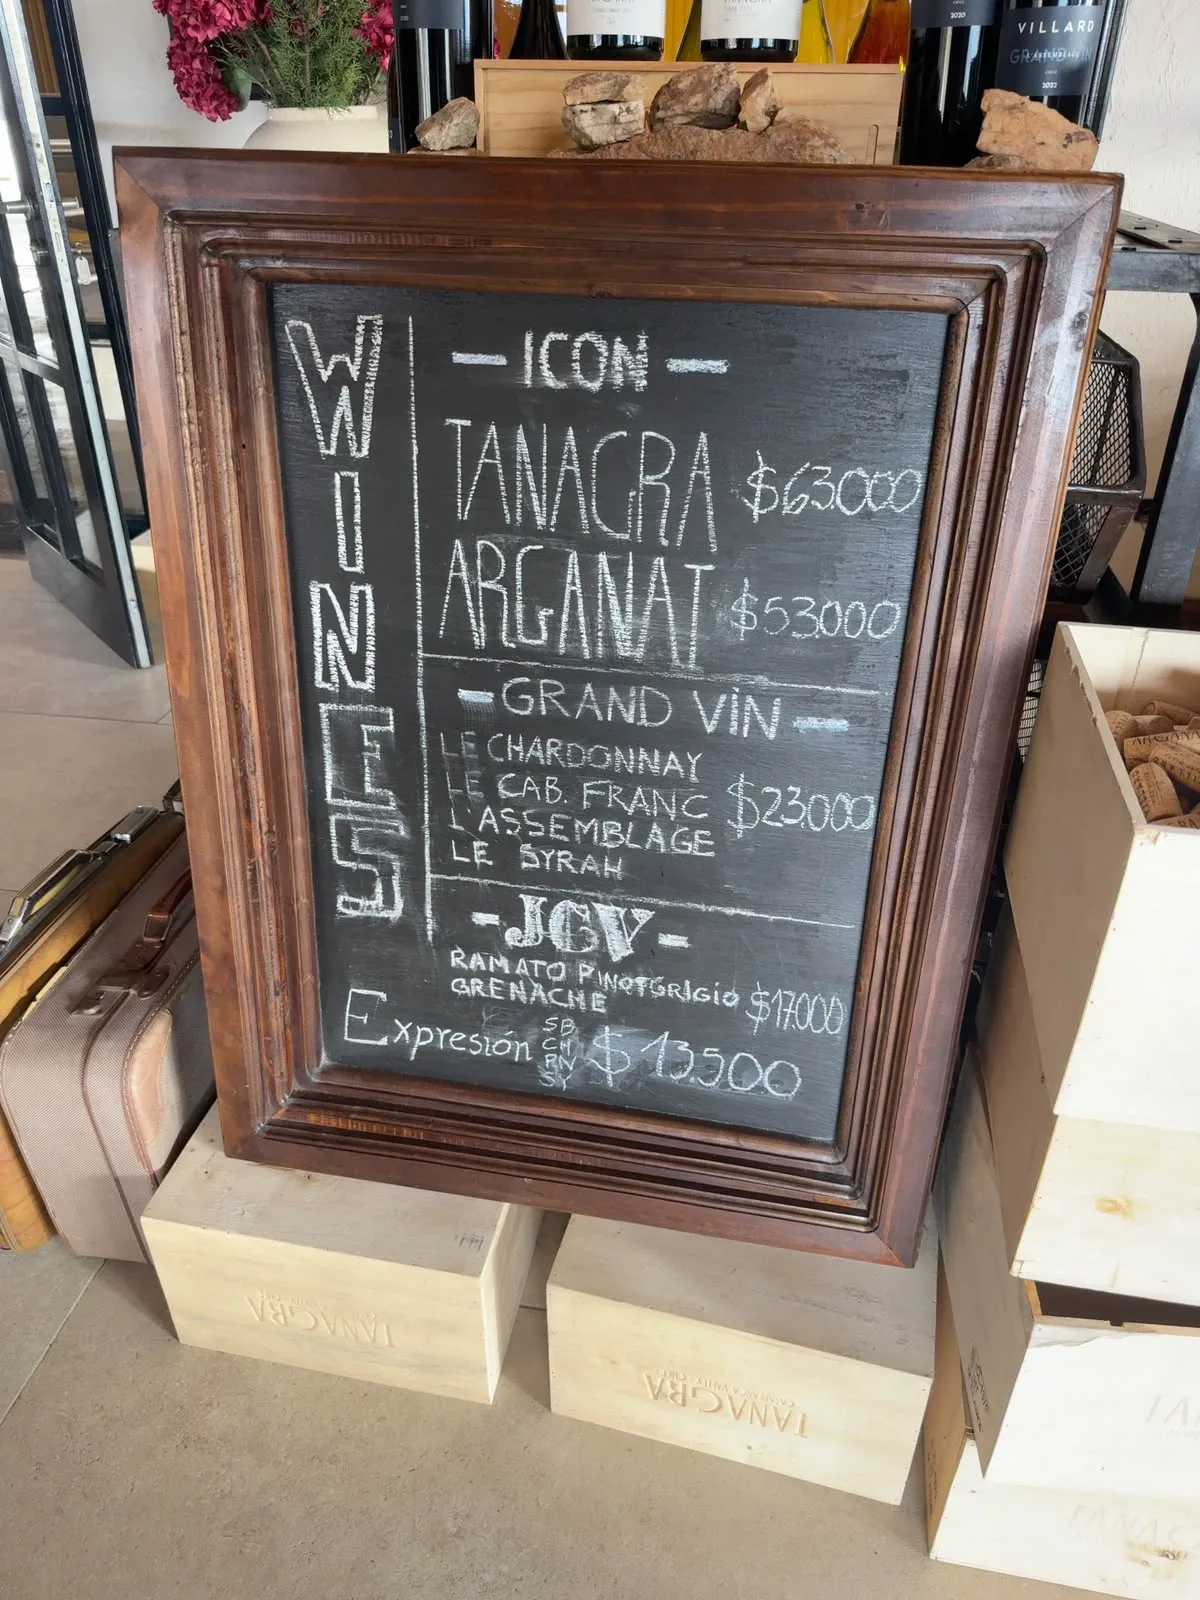 VILLARD
GRAND VIN
L'ASSEMBLAGE
2020
2022
WINES
- ICON -
TANAGRA $63.000
ARGANAT $53.000
- GRAND VIN -
LE CHARDONNAY
LE CAB. FRANC $23.000
L'ASSEMBLAGE
LE SYRAH
- JCV -
RAMATO PINOTGRIGIO $17.000
GRENACHE
Expresión SB CH PN SY $13.500
TANAGRA
TANAGRA